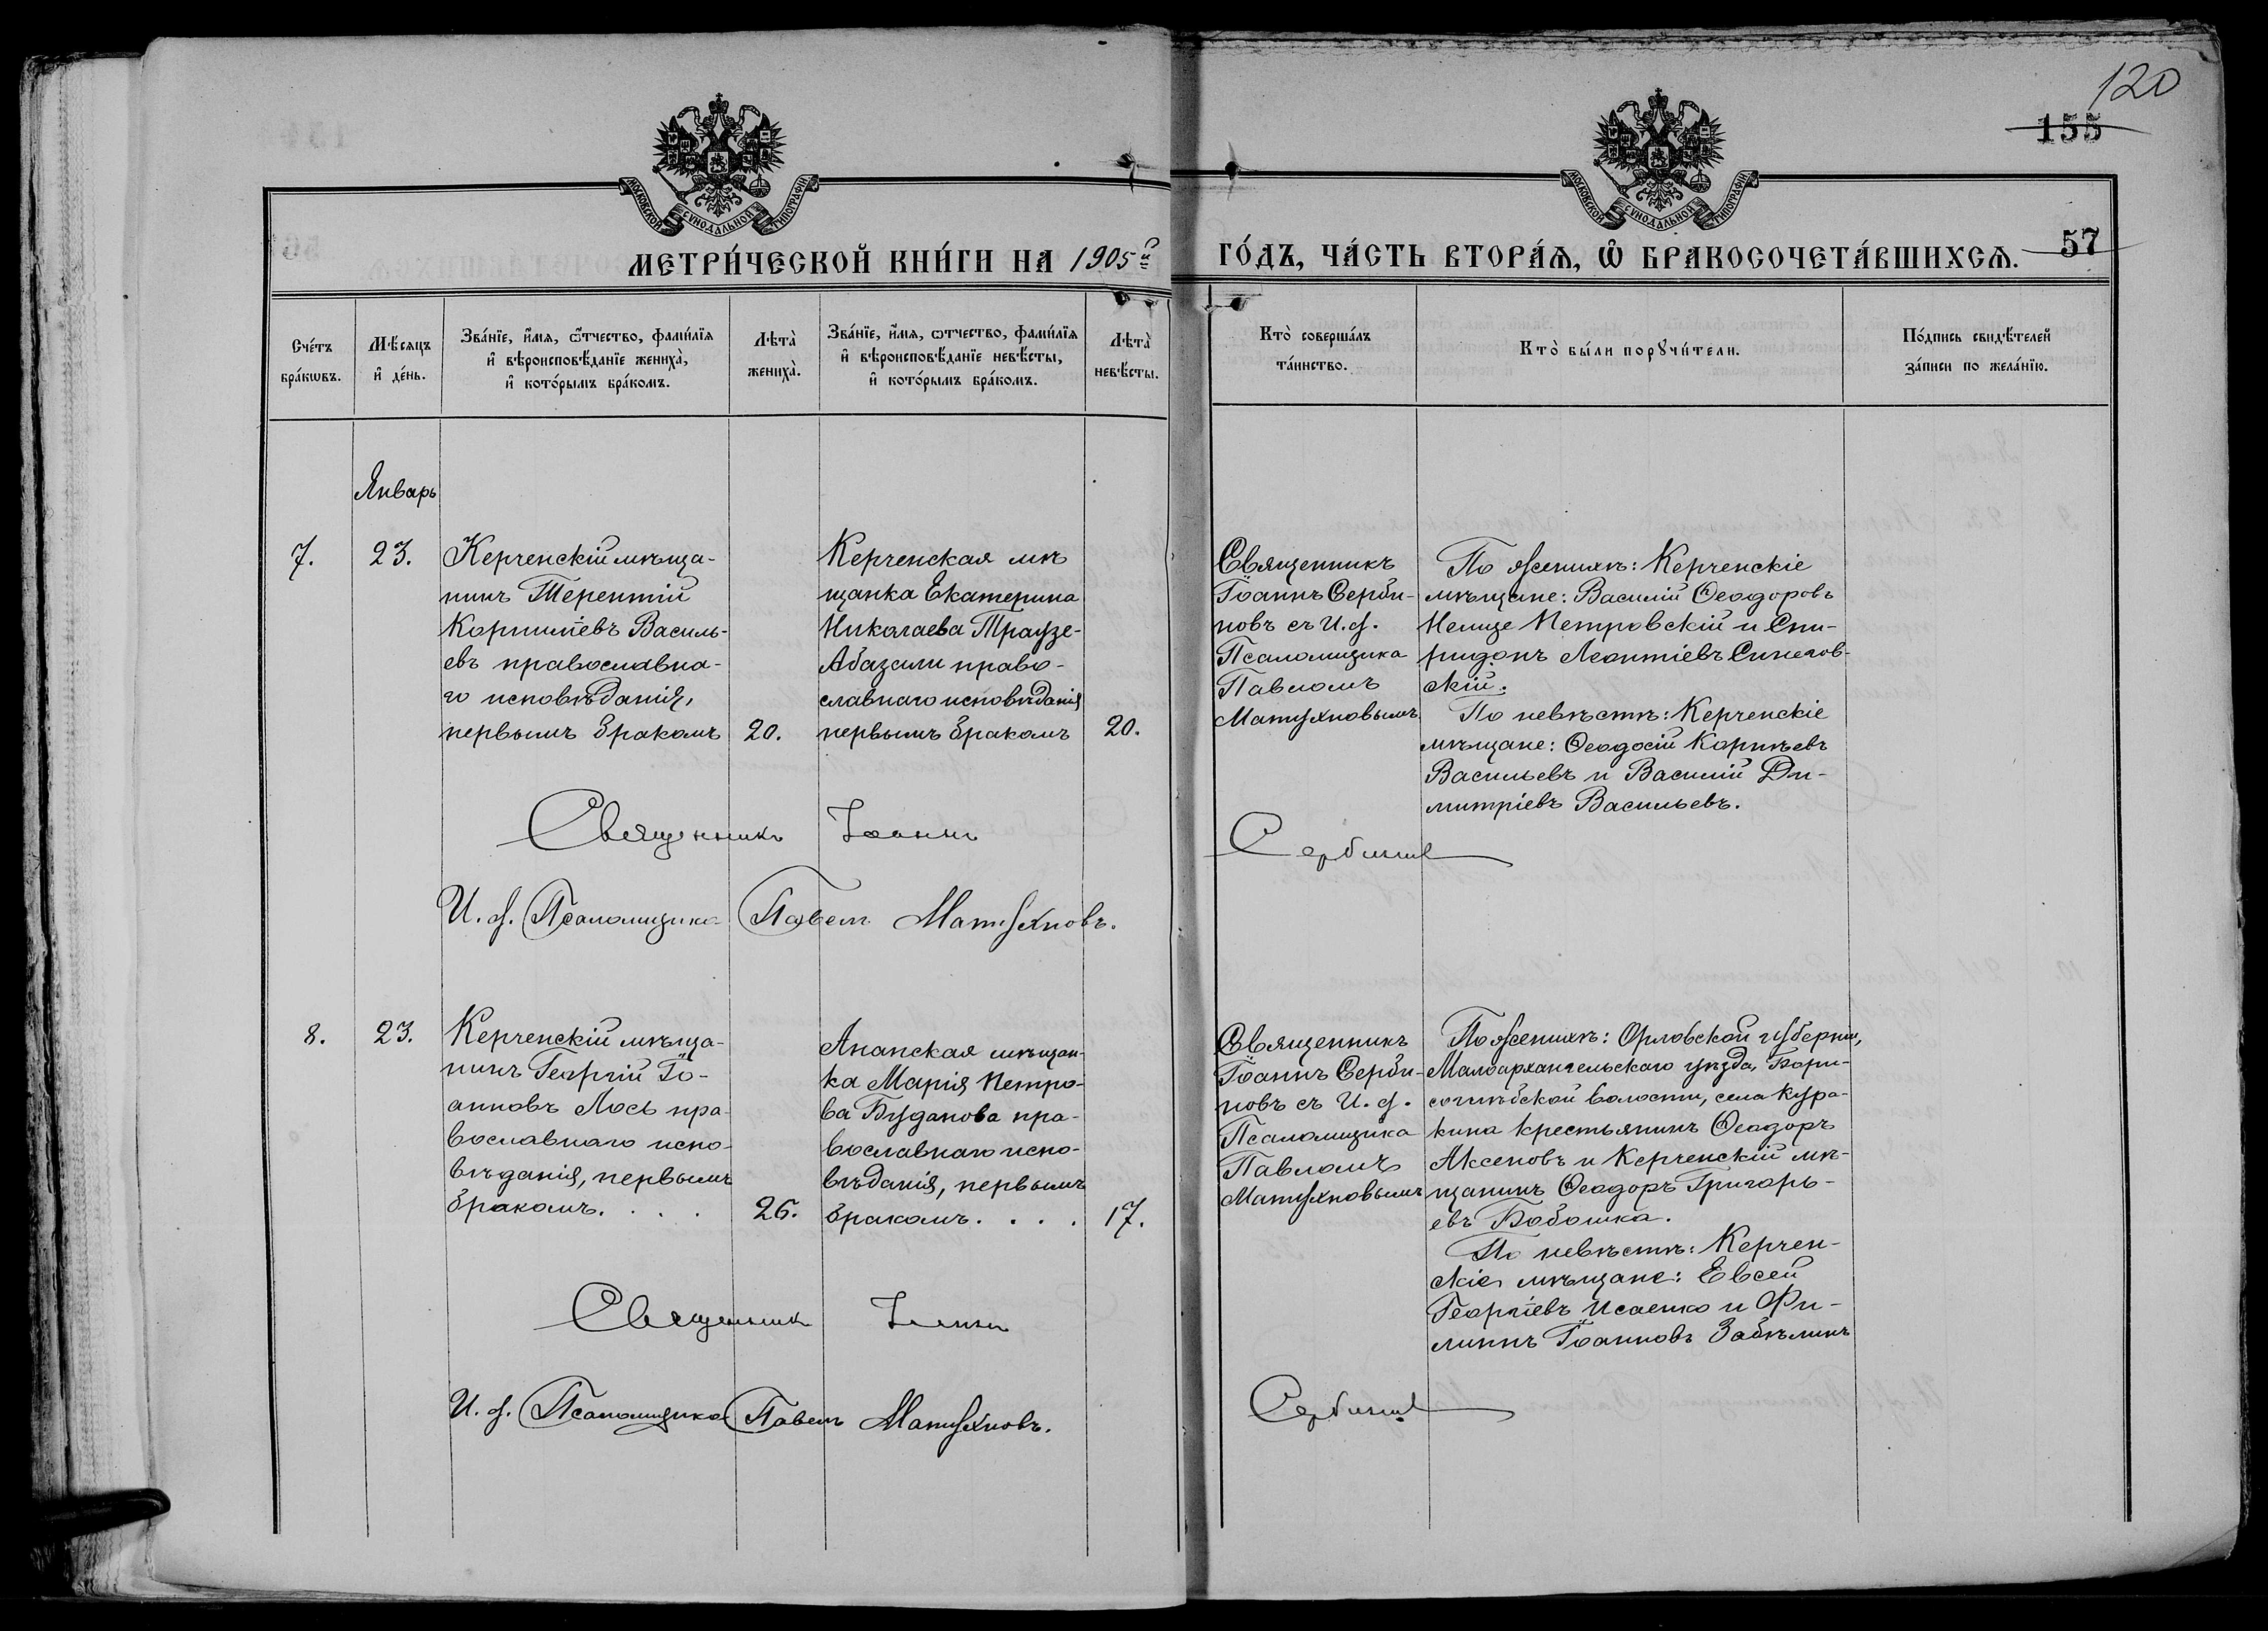 120
155
МОСКОВСКОЙ СУНОДАЛЬНОЙ ТИПОГРАФІИ
МОСКОВСКОЙ СУНОДАЛЬНОЙ ТИПОГРАФІИ
МЕТРИ́ЧЕСКОЙ КНИ́ГИ НА 1905й
ГО́ДЪ, ЧА́СТЬ ВТОРА́Ѧ, Ѽ БРАКОСОЧЕТА́ВШИХСѦ.
57
Сче́тъ
бра́кѡвъ.
Мѣ́сяцъ
и҆ де́нь.
Зва́нїе, и҆́мѧ, ѻ҆́тчество, фами́лїѧ
и҆ вѣроисповѣ́данїе жениха̀,
и҆ кото́рымъ бра́комъ.
Лѣта̀
жениха̀.
Зва́нїе, и҆́мѧ, ѻтчество, фами́лїѧ
и҆ вѣроисповѣ́данїе невѣ́сты,
и҆ кото́рымъ бра́комъ.
Лѣта̀
невѣ́сты.
Кто̀ соверша́лъ
та́инство.
Кто̀ бы́ли порꙋчи́тели.
По́дпись свидѣ́телей
за́писи по жела́нїю.
Январь
7.
23.
Керченскій мѣща-
нинъ Терентій
Корнилíевъ Василь-
евъ православна-
го исповѣданія,
первымъ бракомъ
20.
Керченская мѣ
щанка Екатерина
Николаева Траузе-
Абазали право-
славнаго исповѣданія
первымъ бракомъ
20.
Священникъ
Іоаннъ Серби-
новъ съ И. д.
Псаломщика
Павломъ
Матухновымъ
По женихѣ: Керченскіе
мѣщане: Василій Ѳеодоровъ
Петровскій и Спи-
ридонъ Леонтіевъ
скій.
По невѣстѣ: Керченскіе
мѣщане: Ѳеодосій Корнѣевъ
Васильевъ и Василій Ди-
митріевъ Васильевъ.
Священникъ Іоаннъ
Сербиновъ
И. д. Псаломщика Павелъ Матухновъ.
8.
23.
Керченскій мѣща-
нинъ Георгій Іо-
анновъ Лось пра-
вославнаго испо-
вѣданія, первымъ
бракомъ. . . .
26.
Анапская мѣщан-
ка Марія Петро-
ва Буданова пра-
вославнаго испо-
вѣданія, первымъ
бракомъ. . . .
17.
Священникъ
Іоаннъ Серби-
новъ съ И. д.
Псаломщика
Павломъ
Матухновымъ
По женихѣ: Орловской губерніи,
Малоархангельскаго уѣзда, Бори-
соглѣбской волости, села Кура-
кина крестьянинъ Ѳеодоръ
Аксеновъ и Керченскій мѣ-
щанинъ Ѳеодоръ Григорь-
евъ Бобошка.
По невѣстѣ: Керчен-
скіе мѣщане: Евсей
Георгіевъ Исаенко и Фи-
липпъ Іоанновъ Забѣлинъ
Священникъ Іоаннъ
Сербиновъ
И. д. Псаломщика Павелъ Матухновъ.